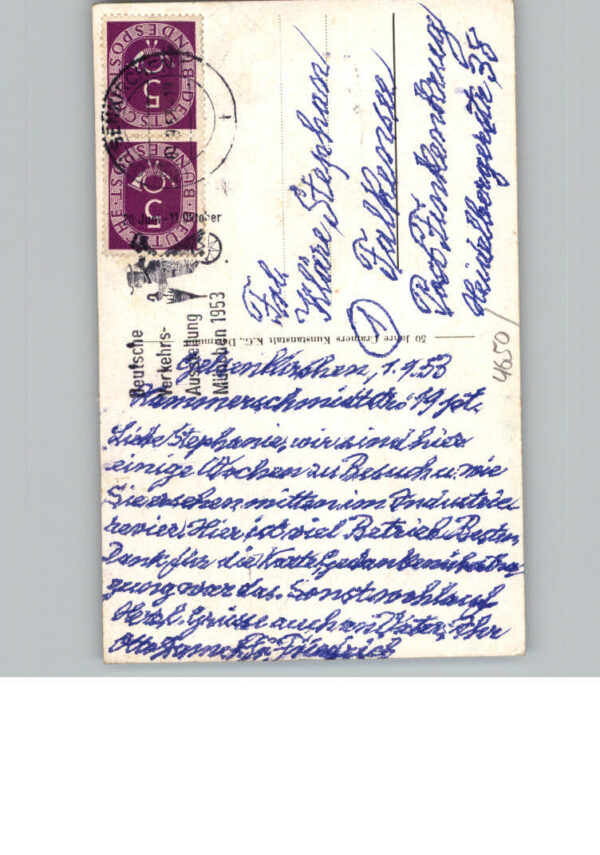 DEUTSCHE BUNDESPOST
5
DEUTSCHE BUNDESPOST
5
20. Juni - 11. Oktober
Deutsche
Verkehrs-
Ausstellung
München 1953
Frl.
Kläre Stephan
Falkensee
Post Finkenkrug
Heidelbergerstr. 38
1
4650
50 Jahre Crämers Kunstanstalt K.G.,
Gelsenkirchen, 1.9.53
Hammerschmidtstr. 19 pt.
Liebe Stephanie, wir sind hier
einige Wochen zu Besuch u. wie
Sie ersehen mitten im Industrie
revier. Hier ist viel Betrieb. Besten
Dank für die Karte
war das. Sonst wohlauf.
Herzl. Grüsse auch an Vater, Ihr
Otto Friedrich